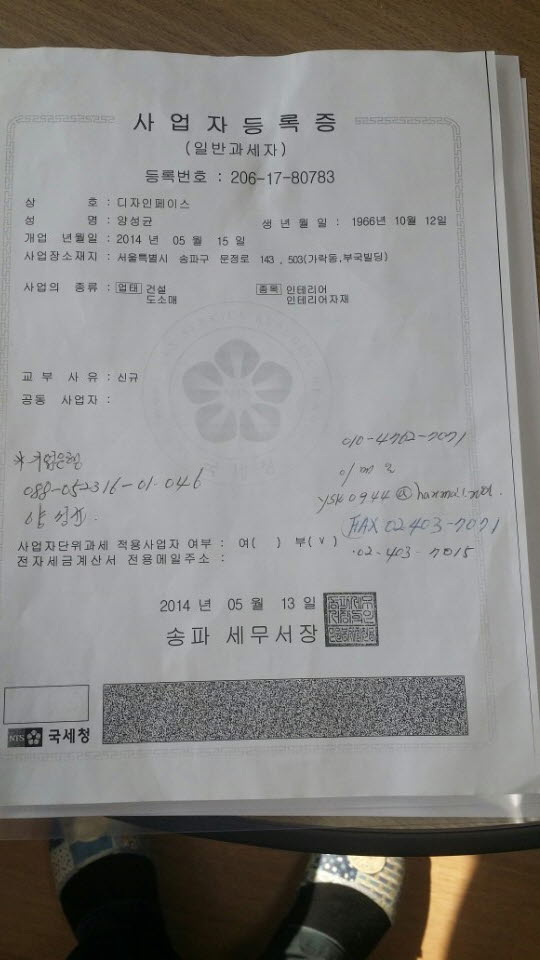 사업자등록증
(일반과세자)
등록번호 : 206-17-80783
상 호 : 디자인페이스
성 명 : 양성균 생 년 월 일 : 1966년 10월 12일
개업 년월일 : 2014 년 05 월 15 일
사업장소재지 : 서울특별시 송파구 문정로 143 , 503(가락동,부국빌딩)
사업의 종류 : 업태 건설 종목 인테리어
도소매 인테리어자재
교 부 사 유 : 신규
공동 사업자 :
010-4762-7071
* 기업은행 이메일
088-052316-01-046 ysk0944@hanmail.net
양성균 FAX 02 403-7071
사업자단위과세 적용사업자 여부 : 여( ) 부( v ) 02-403-7015
전자세금계산서 전용메일주소 :
2014 년 05 월 13 일
송파 세무서장
NTS 국세청